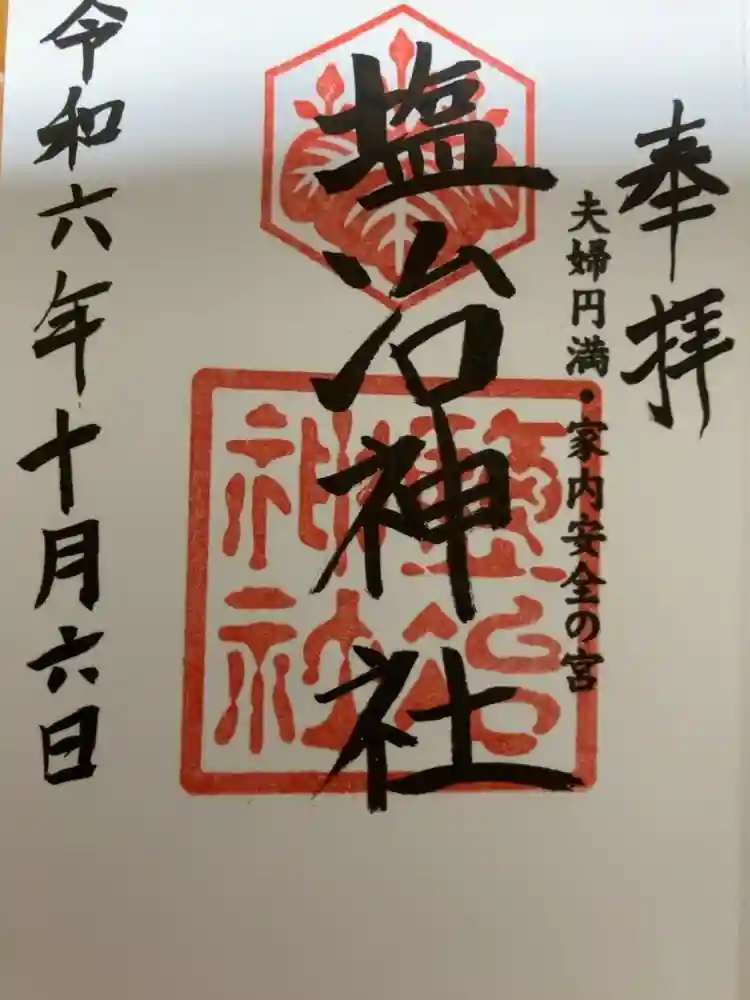 奉拝
夫婦円満・家内安全の宮
塩冶神社
塩冶
神社
令和六年十月六日